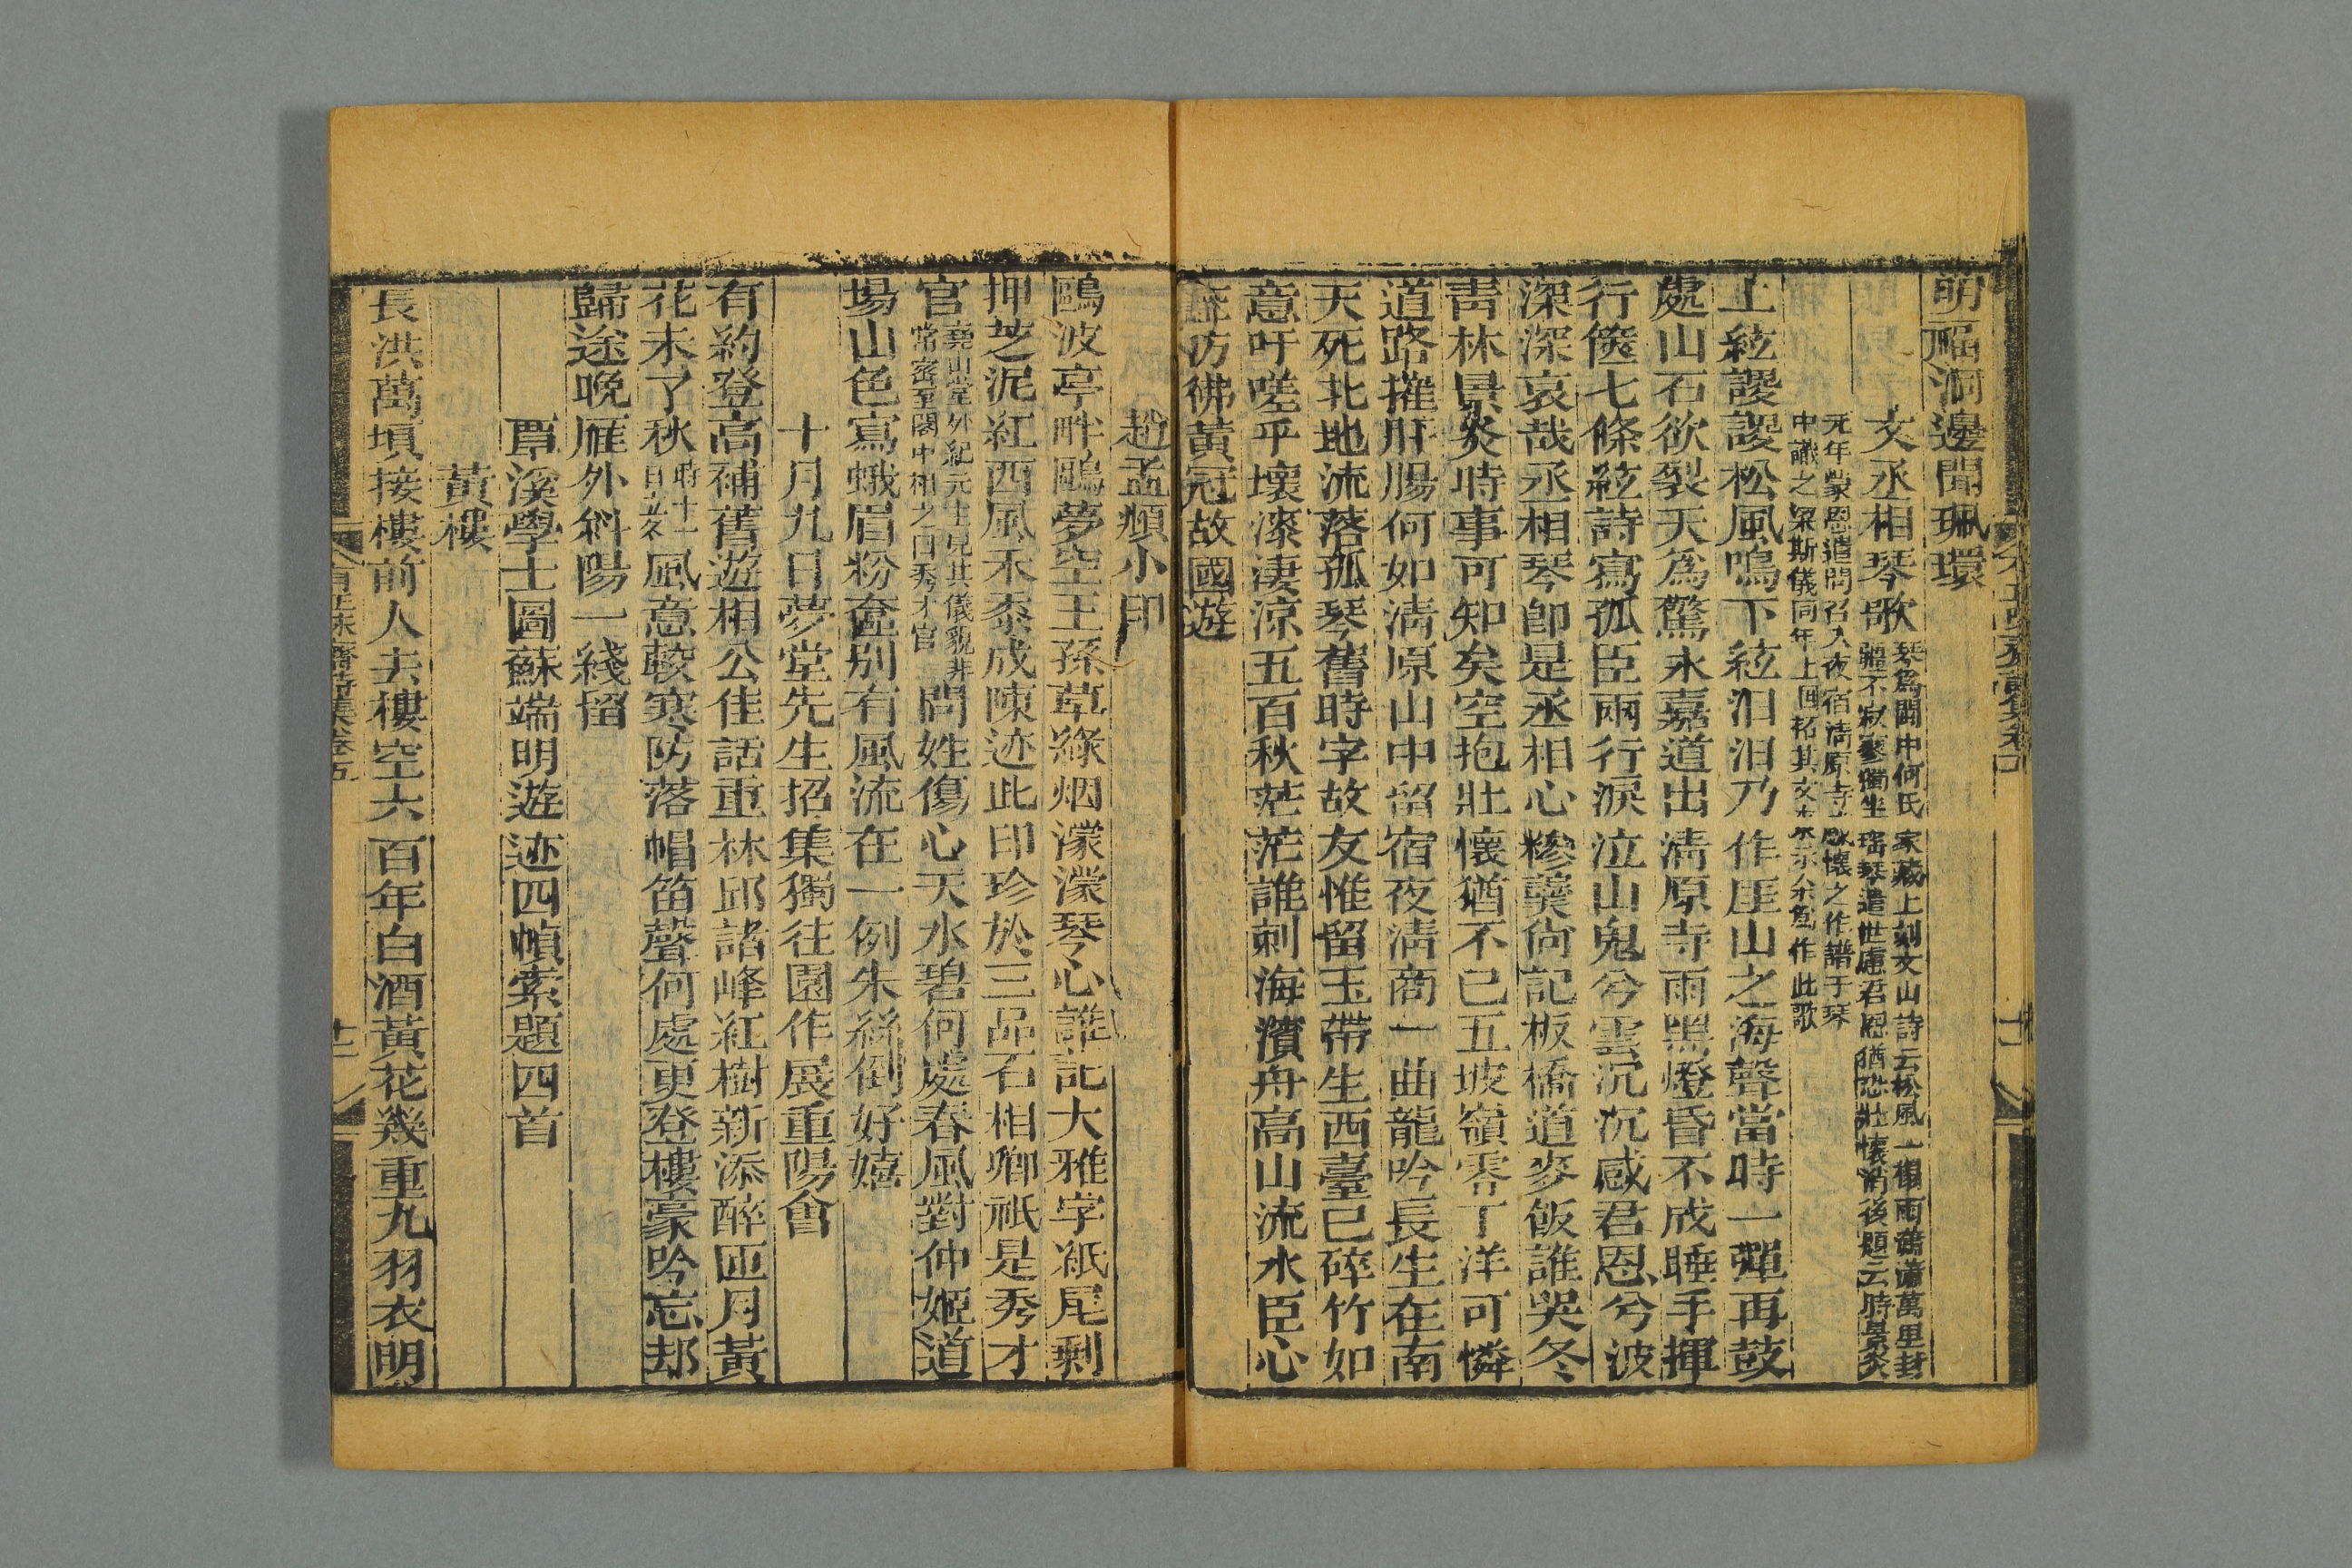 明福洞邊聞珮環
文丞相琴歌琴爲閩中何氏家藏上刻文山詩云松風一榻雨蕭蕭萬里封
疆不寂寥獨坐瑶琴遣世慮君恩猶恐壯懷消後題云時景炎
元年蒙恩遣問召入夜宿清原寺感懷之作譜于琴
中識之梁斯儀同年上回拓其文來示余爲作此歌
上絃謖謖松風鳴下絃汨汨乃作厓山之海聲當時一彈再鼓
處山石欲裂天爲驚永嘉道出淸原寺雨黑燈昏不成睡手揮
行篋七條絃詩寫孤臣兩行淚泣山鬼兮雲沉沉感君恩兮波
深深哀哉丞相琴卽是丞相心糝羹尙記板橋道麥飯誰哭冬
靑林景炎時事可知矣空抱壯懷猶不已五坡嶺零丁洋可憐
道路摧肝腸何如淸原山中留宿夜淸商一曲龍吟長生在南
天死北地流落孤琴舊時字故友惟留玉帶生西臺已碎竹如
意吁嗟乎壞漆淒涼五百秋茫茫誰刺海濱舟高山流水臣心
在彷彿黃冠故國遊
趙孟頫小印
鷗波亭畔鷗夢空王孫草綠烟濛濛琴心誰記大雅字紙尾剩
押芝泥紅西風禾黍成陳迹此印珍於三品石相鄉祇是秀才
官堯山堂外紀元主見其儀貌非常密至閣中相之曰秀才官問姓傷心天水碧何處春風對仲姬道
場山色寫蛾眉粉奩別有風流在一例朱絲倒好嬉
十月九日夢堂先生招集獨往園作展重陽會
有約登高補舊遊相公佳話重林邱諸峰紅樹新添醉匝月黃
花未了秋時十一日立冬風意較寒防落帽笛聲何處更登樓豪吟忘却
歸途晚雁外斜陽一綫留
覃溪學士圖蘇端明遊迹四幀索題四首
黃樓
長洪萬填接樓前人去樓空六百年白酒黃花幾重九羽衣明
有正味齋詩集卷五
十二